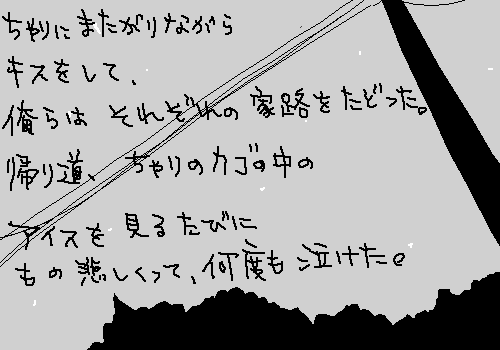 ちゃりにまたがりながら
キスをして、
俺らは それぞれの 家路をたどった。
帰り道、ちゃりのカゴの中の
アイスを 見るたびに
もの悲しくって、何度も 泣けた。